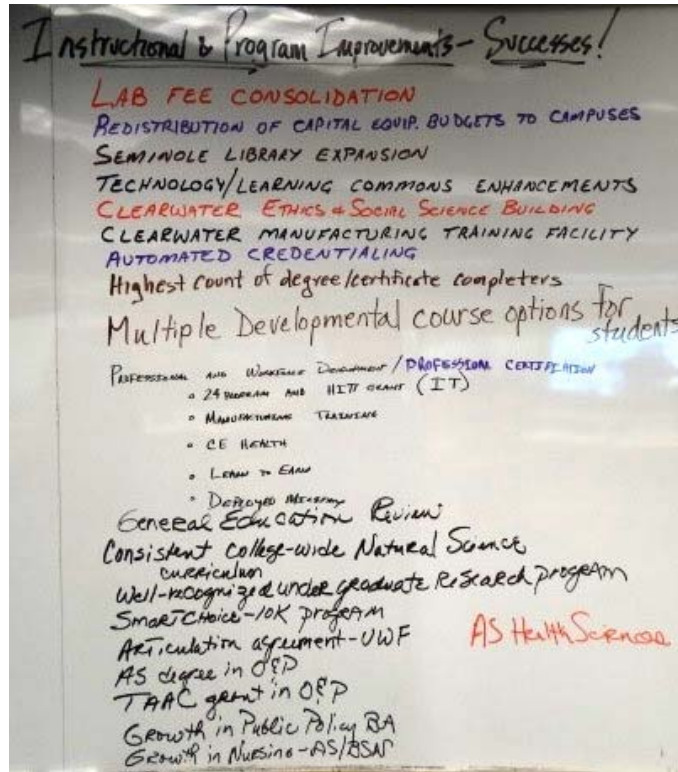 Instructional & Program Improvements - Successes!
LAB FEE CONSOLIDATION
REDISTRIBUTION OF CAPITAL EQUIP. BUDGETS TO CAMPUSES
SEMINOLE LIBRARY EXPANSION
TECHNOLOGY/LEARNING COMMONS ENHANCEMENTS
CLEARWATER ETHICS & SOCIAL SCIENCE BUILDING
CLEARWATER MANUFACTURING TRAINING FACILITY
AUTOMATED CREDENTIALING
Highest count of degree/certificate completers
Multiple Developmental course options for
students
PROFESSIONAL AND WORKFORCE DEVELOPMENT / PROFESSIONAL CERTIFICATION
• 24 PROGRAM AND GRANT (IT)
• MANUFACTURING TRAINING
• CE HEALTH
• LEARN TO EARN
• DEPLOYED MILITARY
General Education Review
Consistent College-wide Natural Science
curriculum
Well-recognized undergraduate Research program
SmartChoice-10K program
Articulation agreement-UWF
AS Health Sciences
AS degree in O&P
TAAC grant in O&P
Growth in Public Policy BA
Growth in Nursing-AS/BSN